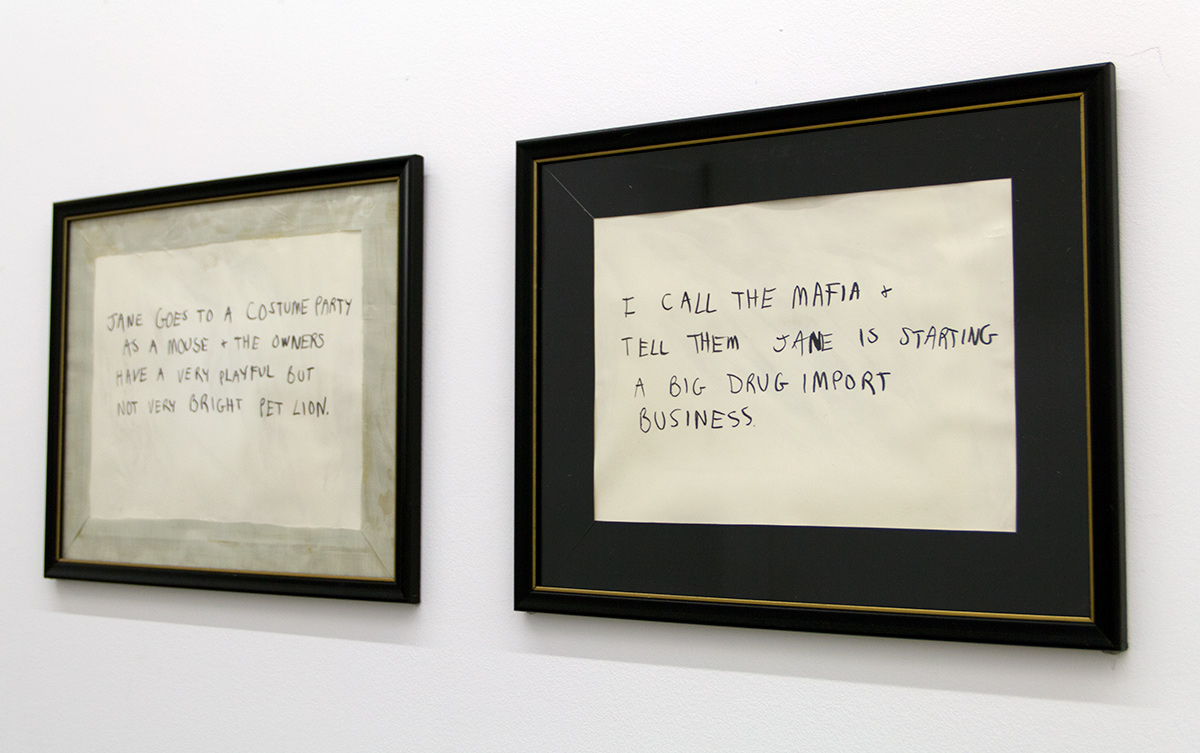 JANE GOES TO A COSTUME PARTY
AS A MOUSE + THE OWNERS
HAVE A VERY PLAYFUL BUT
NOT VERY BRIGHT PET LION.
I CALL THE MAFIA +
TELL THEM JANE IS STARTING
A BIG DRUG IMPORT
BUSINESS.